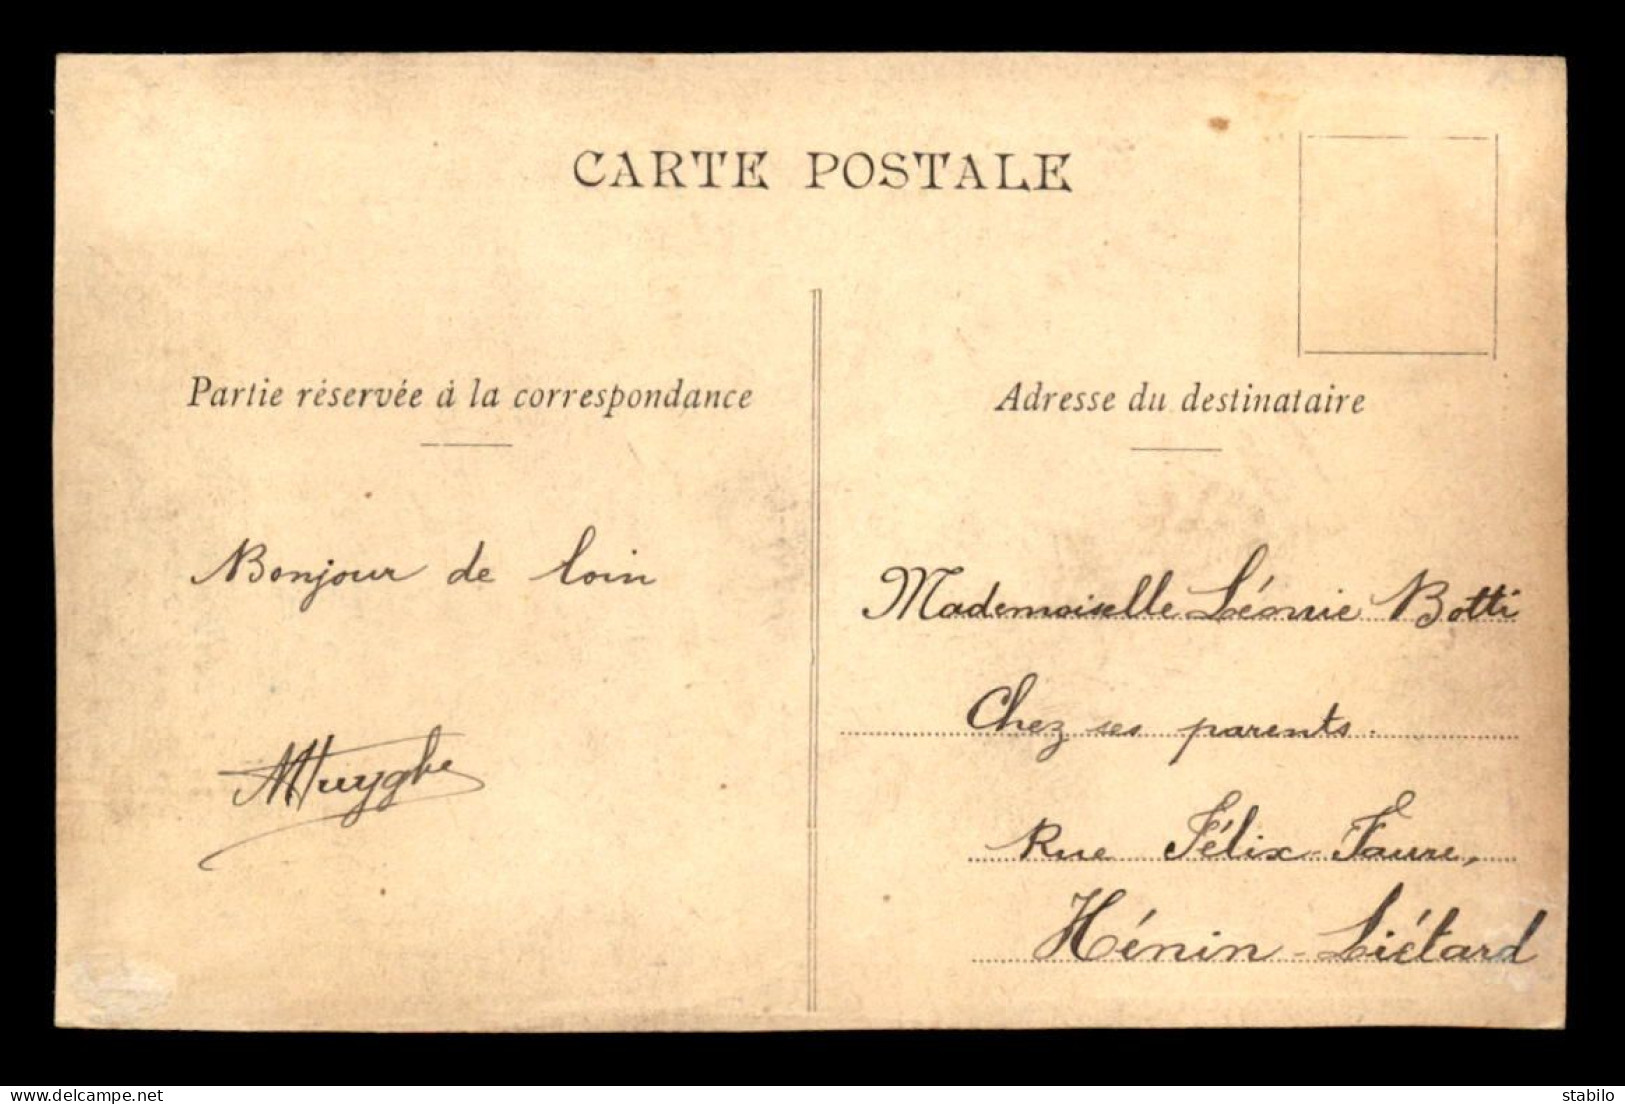 CARTE POSTALE
Partie réservée à la correspondance
Bonjour de loin
MHuyghe
Adresse du destinataire
Mademoiselle Léonie Botti
Chez ses parents.
Rue Félix-Faure,
Hénin-Liétard
delcampe.net
stabilo